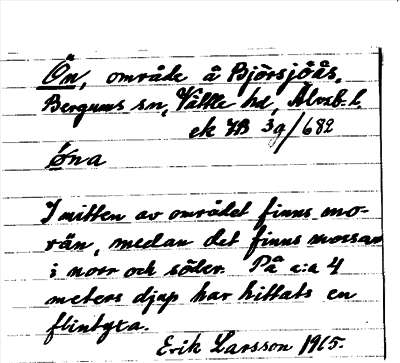 Ön, område å Björsjöås,
Bergums sn, Vättle hd, Älvsb. l.
ek 7B 3g/682
öna
I mitten av området finns mo-
rän, medan det finns mossar
i norr och söder. På c:a 4
meters djup har hittats en
flintyxa.
Erik Larsson 1965.